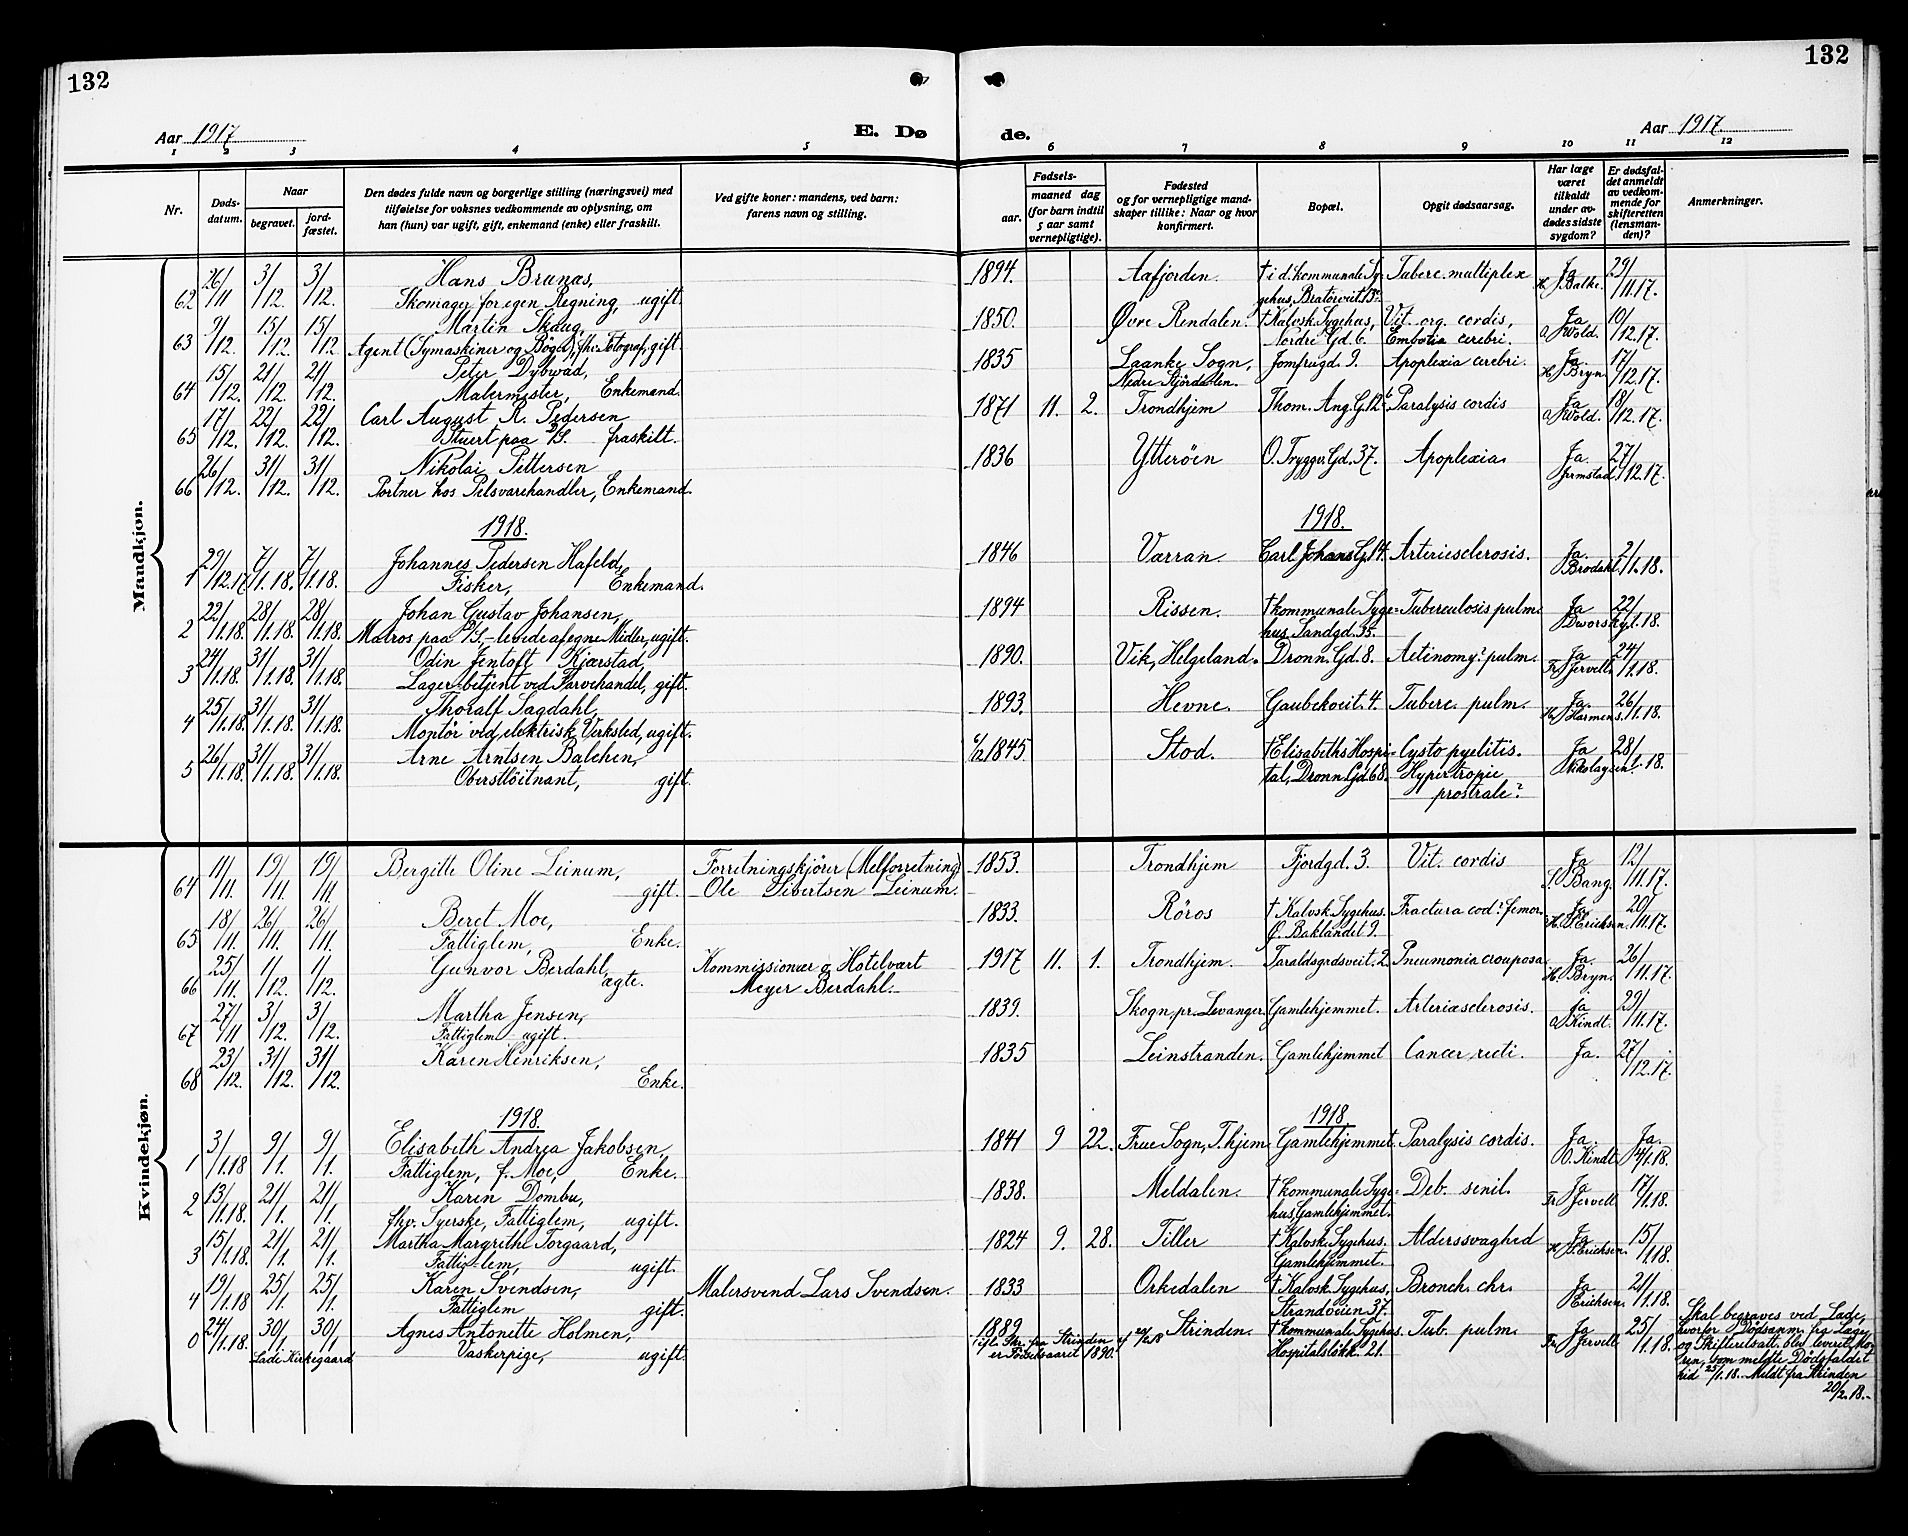 132
132
Aar 1917
E. Døde.
Aar 1917
1 2 3 4 5 6 7 8 9 10 11 12
Nr.
Døds-datum.
Naar
begravet.
jord-fæstet.
Den dødes fulde navn og borgerlige stilling (næringsvei) med
tilføielse for voksnes vedkommende av oplysning, om
han (hun) var ugift, gift, enkemand (enke) eller fraskilt.
Ved gifte koner: mandens, ved barn:
farens navn og stilling.
Fødsels-
aar.
maaned dag
(for barn indtil
5 aar samt
vernepligtige).
Fødested
og for vernepligtige mand-
skaper tillike: Naar og hvor
konfirmert.
Bopæl.
Opgit dødsaarsag.
Har læge
været
tilkaldt
under av-
dødes sidste
sygdom?
Er dødsfal-
det anmeldt
av vedkom-
mende for
skifteretten
(lensman-
den)?
Anmerkninger.
Mandkjøn.
62 26/11 3/12. 3/12. Hans Brunas, 1894. Aafjorden. † i d. kommunale Sy- Tuberc. multiplex Ja 29/11.17.
Skomager for egen Regning, ugift. gehus, Bratørveit.
63 9/12. 15/12. 15/12 Martin Skaug, 1850. Øvre Rendalen. † Kalvsk. Sygehus, Vit. org. cordis, Ja Wold. 10/12.17.
Agent (Symaskiner og Bøger), fhv. Fotograf, gift. Nordre Gd. 6. Embolia cerebri.
64 15/12. 21/12. 21/12. Peter Dybwad, 1835 Laanke Sogn, Jomfrugd. 9. Apoplexia cerebri. Ja. H. Bryn 17/12.17.
Malermester, Enkemand. Nedre Stjørdalen.
65 17/12. 22/12. 22/12. Carl August R. Pedersen 1871 11. 2. Trondhjem Thom. Ang. G. 12b Paralysis cordis Ja Wold. 18/12.17.
Stuert paa D/S. fraskilt.
66 26/12. 31/12. 31/12. Nikolai Pettersen 1836 Ytterøen O. Tryggv. Gd. 37. Apoplexia. Ja. 27/12.17.
Portner hos Pelsvarehandler, Enkemand.
1918. 1918.
1 29/12.17 7/1.18. 7/1.18. Johannes Pedersen Hafeld, 1846 Værran. Carl Johans G. 14. Arteriesclerosis. Ja. Brodahl. 2/1.18.
Fisker, Enkemand.
2 22/1.18. 28/1.18. 28/1.18. Johan Gustav Johansen, 1894 Rissen. † kommunale Syge= Tuberculosis pulm. Ja Dworsky. 22/1.18.
Matros paa D/S. - levede af egne Midler, ugift. hus Sandgd. 35.
3 24/1.18. 31/1.18. 31/1.18. Odin Jentoft Kjærstad, 1890. Vik, Helgeland. Dronn. Gd. 8. Actinomy? pulm. Ja Fr. Jervell 24/1.18.
Lager-betjent ved Farvehandel, gift.
4 25/1.18. 31/1.18. 31/1.18. Thoralf Sagdahl, 1893. Hevne. Gaubekveit. 4. Tuberc. pulm. Ja. Harmens. 26/1.18.
Montør ved elektrisk Verksted, ugift.
5 26/1.18. 31/1.18. 31/1.18. Arne Arntsen Balchen, 6/2 1845. Stod. † Elisabeths Hospi= Cysto pyelitis. Ja Nikolaysen 28/1.18.
Oberstløitnant, gift. tal, Dronn. Gd 68. Hypertropie
prostrale?
Kvindekjøn.
64 11/11. 19/11. 19/11. Bergitte Oline Leinum, Forretningskjører (Melforretning) 1853. Trondhjem Fjordgd. 3. Vit. cordis Ja Bang. 12/11.17.
gift. Ole Sivertsen Leinum.
65 18/11. 26/11. 26/11. Beret Moe, 1833. Røros † Kalvsk. Sygehus. Fractura cod? femor. Ja. H. S. Erichsen. 20/11.17.
Fattiglem, Enke. Ø. Baklandet 9.
66 25/11. 1/12. 1/12. Gunvor Berdahl, Kommissionær & Hotelvært 1917 11. 1. Trondhjem. Taraldsgrdsveit. 2. Pneumonia crouposa Ja. H. Bryn. 26/11.17.
ægte. Meyer Berdahl.
67 27/11 3/12. 3/12. Martha Jensen, 1839. Skogn, pr. Levanger. Gamlehjemmet. Arteriæsclerosis. Ja Kindt. 29/11.17.
Fattiglem ugift.
68 23/12. 31/12. 31/12. Karen Henriksen, 1835 Leinstranden. Gamlehjemmet Cancer recti. Ja. 27/12.17.
Enke.
1918. 1918
1 3/1.18 9/1. 9/1. Elisabeth Andrea Jakobsen, 1841 9 22. Frue Sogn, T.hjem Gamlehjemmet. Paralysis cordis. Ja. O. Kindt Ja. 4/1.18.
Fattiglem, f. Moe, Enke.
2 13/1.18. 21/1. 21/1. Karen Dombu, 1838. Meldalen. † kommunale Syge= Deb. senil. Ja Fr. Jervell 17/1.18.
fhv. Syerske, Fattiglem, ugift. hus Gamlehjemmet.
3 15/1.18. 21/1. 21/1. Martha Margrethe Torgaard, 1824 9. 28. Tiller † Kalvsk. Sygehus. Alderssvaghed Ja Erichsen. 15/1.18.
Fattig-lem, ugift. Gamlehjemmet.
4 19/1.18 25/1. 25/1. Karen Svendsen, Malersvend Lars Svendsen. 1833 Orkedalen † Kalvsk. Sygehus, Bronch. chr. Ja Erichsen 21/1.18.
Fattiglem gift. Strandveien 37.
0 24/1.18. 30/1. 30/1. Agnes Antonette Holmen, 1889 Strinden. † kommunale Sygehus. Tub. pulm. Ja Fr. Jervell 25/1.18.
Lade Kirkegaard Vaskerpige, ugift. Ifl. Skr. fra Strinden af 20/2.18 er Fødselsaaret 1890. Hospitalsløkk. 21.
Skal begraves ved Lade,
hvorfor Dødsanm. fra Læge
og Skifteretsatt. blev leveret
som meldte Dødsfaldet
hid 25/1.18. Meldt fra Strinden
20/2.18.-